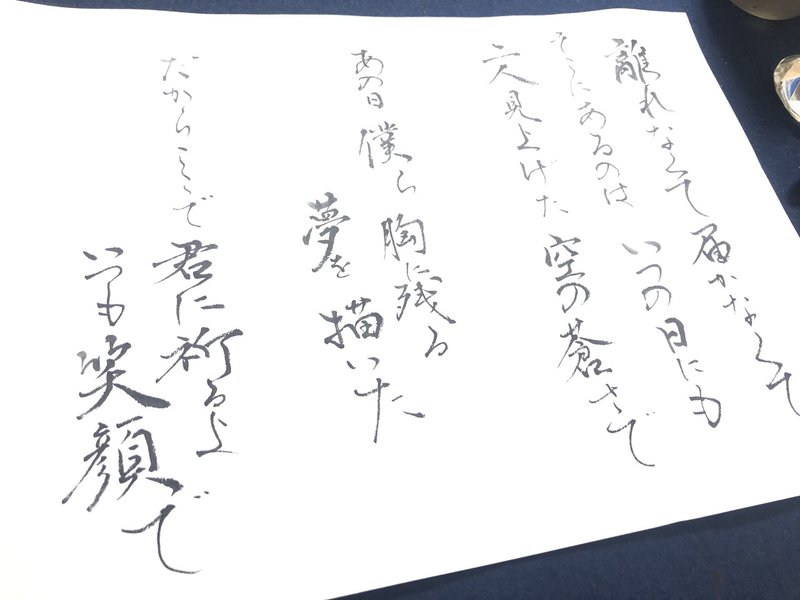 離れなくて 届かなくて
そこにあるのは いつの日にも
二人見上げた 空の蒼さで
あの日 僕ら 胸に残る
夢を 描いた
だからここで 君に祈るよ
いつも 笑顔で